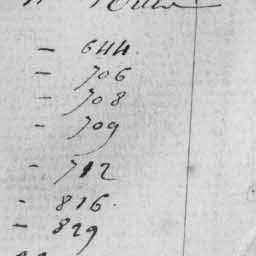 - 644.
- 706
- 708
- 709
- 712
- 816.
- 829